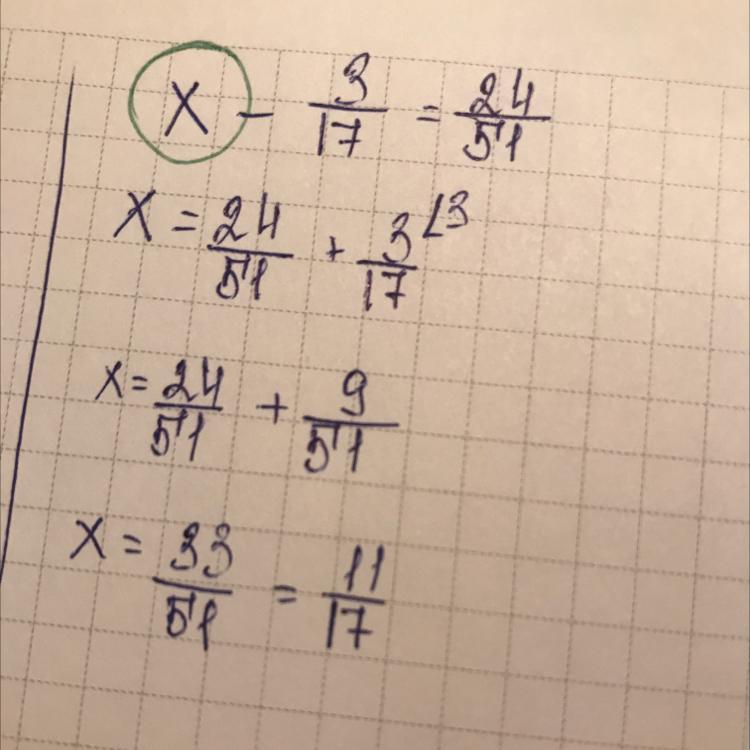 X - 3/17 = 24/51
X = 24/51 + 3/17 ∠3
X = 24/51 + 9/51
X = 33/51 = 11/17